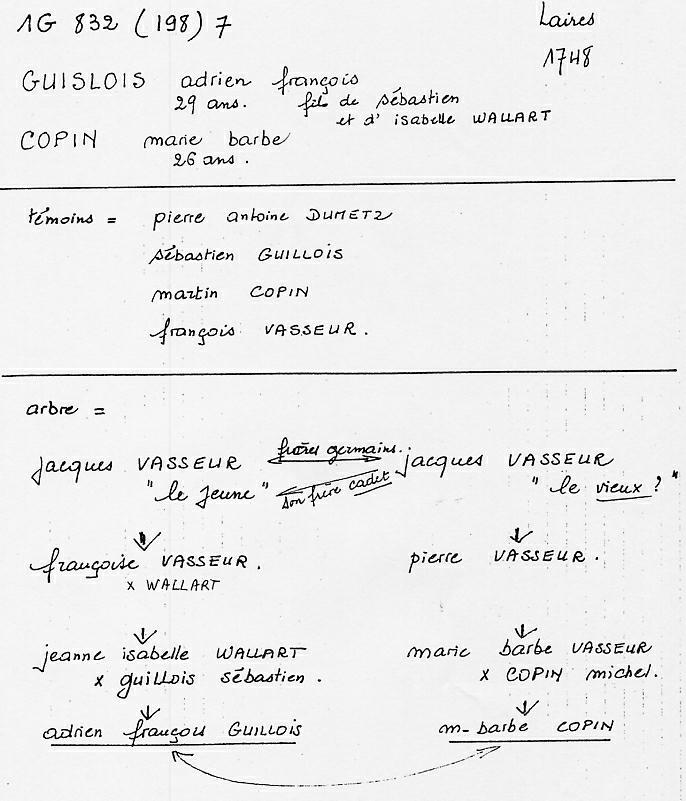 1G 832 (198) 7 Laires
1748
GUISLOIS adrien françois
29 ans. fils de sébastien
et d' isabelle WALLART
COPIN marie barbe
26 ans.
témoins = pierre antoine DUMETZ
sébastien GUILLOIS
martin COPIN
françois VASSEUR.
arbre =
jacques VASSEUR frères germains.. jacques VASSEUR
"le jeune" son frère cadet "le vieux ?"
françoise VASSEUR. pierre VASSEUR.
x WALLART
jeanne isabelle WALLART marie barbe VASSEUR
x guillois sébastien. x COPIN michel.
adrien françois GUILLOIS m-barbe COPIN